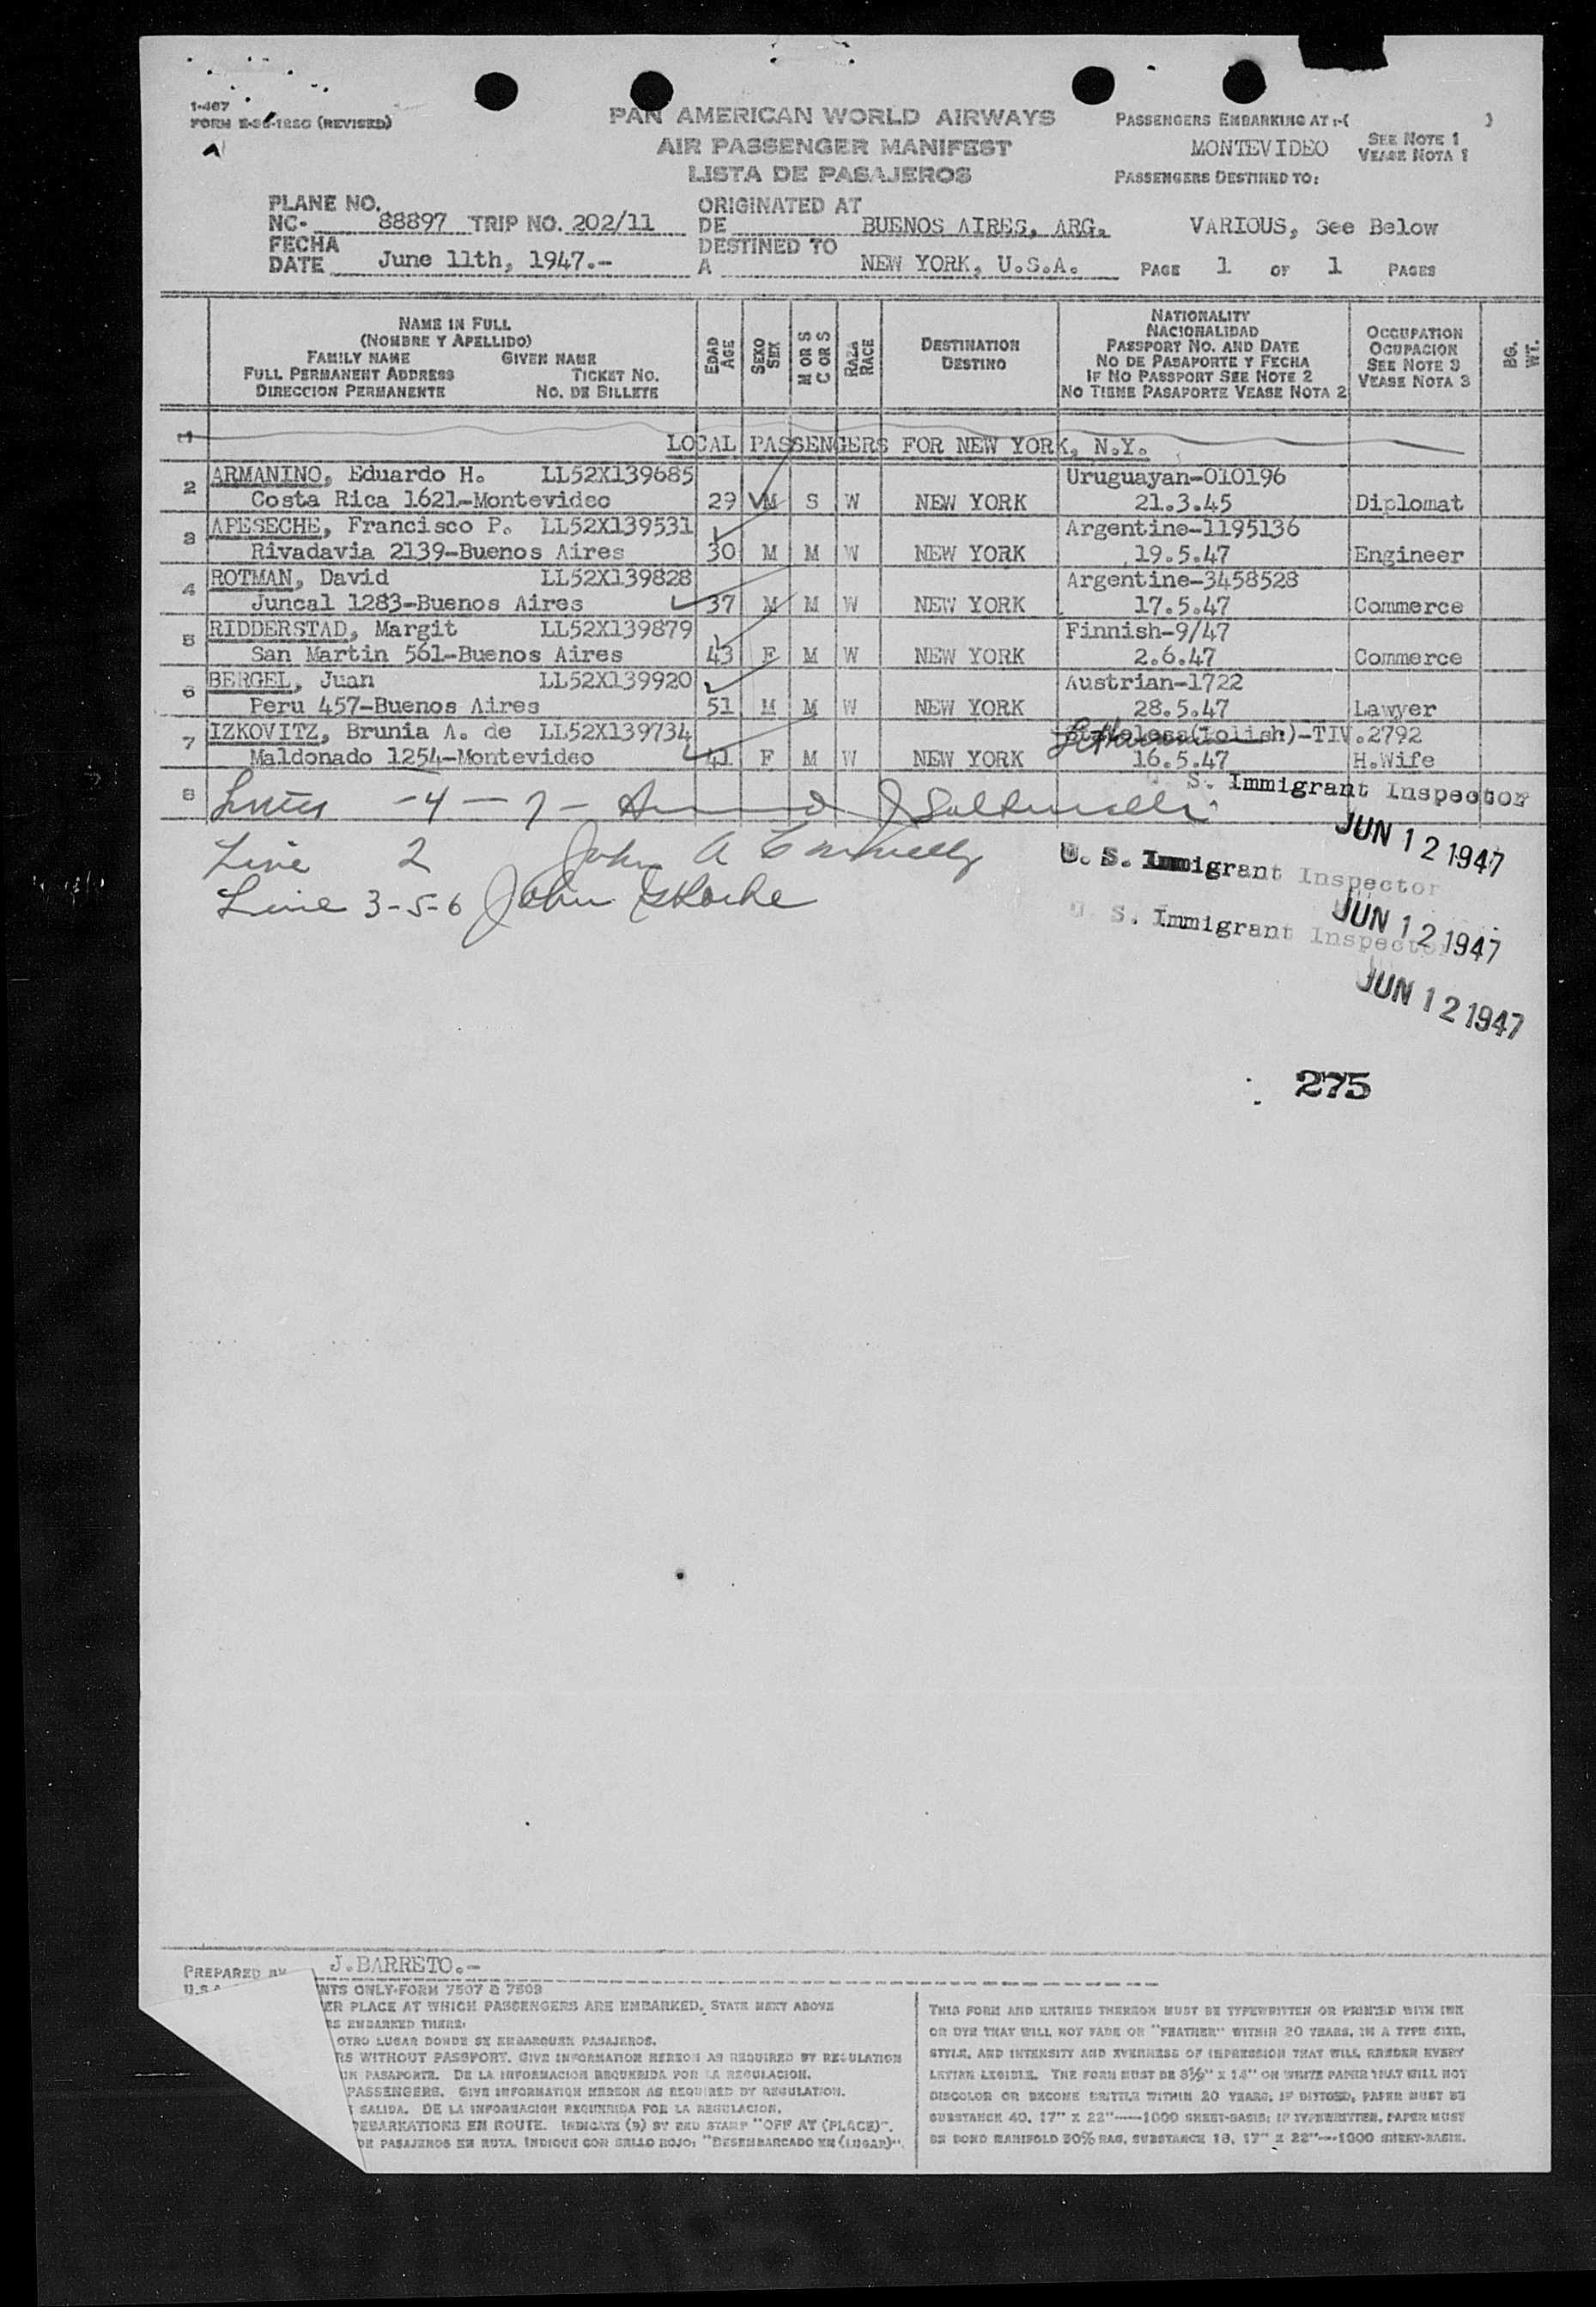 1-407
FORM E-36-122G (REVISED)
PAN AMERICAN WORLD AIRWAYS
AIR PASSENGER MANIFEST
LISTA DE PASAJEROS
PASSENGERS EMBARKING AT :-( )
MONTEVIDEO
SEE NOTE 1
VEASE NOTA 1
PASSENGERS DESTINED TO:
VARIOUS, See Below
PLANE NO.
NC- 88897 TRIP NO. 202/11
FECHA
DATE June 11th, 1947.-
ORIGINATED AT
DE BUENOS AIRES, ARG.
DESTINED TO
A NEW YORK, U.S.A.
PAGE 1 OF 1 PAGES
NAME IN FULL
(NOMBRE Y APELLIDO)
FAMILY NAME GIVEN NAME
FULL PERMANENT ADDRESS TICKET NO.
DIRECCION PERMANENTE NO. DE BILLETE
EDAD
AGE
SEXO
SEX
M OR S
C OR S
RAZA
RACE
DESTINATION
DESTINO
NATIONALITY
NACIONALIDAD
PASSPORT NO. AND DATE
NO DE PASAPORTE Y FECHA
IF NO PASSPORT SEE NOTE 2
NO TIENE PASAPORTE VEASE NOTA 2
OCCUPATION
OCUPACION
SEE NOTE 3
VEASE NOTA 3
BG.
WT.
1 LOCAL PASSENGERS FOR NEW YORK, N.Y.
2 ARMANINO, Eduardo H. LL52X139685 Uruguayan-010196
Costa Rica 1621-Montevideo 29 M S W NEW YORK 21.3.45 Diplomat
3 APESECHE, Francisco P. LL52X139531 Argentine-1195136
Rivadavia 2139-Buenos Aires 30 M M W NEW YORK 19.5.47 Engineer
4 ROTMAN, David LL52X139828 Argentine-3458528
Juncal 1283-Buenos Aires 37 M M W NEW YORK 17.5.47 Commerce
5 RIDDERSTAD, Margit LL52X139879 Finnish-9/47
San Martin 561-Buenos Aires 43 F M W NEW YORK 2.6.47 Commerce
6 BERGEL, Juan LL52X139920 Austrian-1722
Peru 457-Buenos Aires 51 M M W NEW YORK 28.5.47 Lawyer
7 IZKOVITZ, Brunia A. de LL52X139734 Stateless(Polish)-TIV.2792
Maldonado 1254-Montevideo 41 F M W NEW YORK 16.5.47 H.Wife
8 Lines -4-7-
U. S. Immigrant Inspector
JUN 12 1947
Line 2 John A Connelly
U. S. Immigrant Inspector
JUN 12 1947
Line 3-5-6 John
U. S. Immigrant Inspector
JUN 12 1947
275
PREPARED BY J.BARRETO.-
U.S.
NTS ONLY-FORM 7507 & 7509
ER PLACE AT WHICH PASSENGERS ARE EMBARKED. STATE NEXT ABOVE
RS EMBARKED THERE:
OTRO LUGAR DONDE SE EMBARQUEN PASAJEROS.
RS WITHOUT PASSPORT. GIVE INFORMATION HEREON AS REQUIRED BY REGULATION
UN PASAPORTE. DE LA INFORMACION REQUERIDA POR LA REGULACION.
PASSENGERS. GIVE INFORMATION HEREON AS REQUIRED BY REGULATION.
SALIDA. DE LA INFORMACION REQUERIDA FOR LA REGULACION.
DEBARKATIONS EN ROUTE. INDICATE (B) BY RED STAMP "OFF AT (PLACE)".
DE PASAJEROS EN RUTA. INDIQUE CON SELLO ROJO: "DESEMBARCADO EN (LUGAR)".
THIS FORM AND ENTRIES THEREON MUST BE TYPEWRITTEN OR PRINTED WITH INK
OR DYE THAT WILL NOT FADE OR "FEATHER" WITHIN 20 YEARS, IN A TYPE SIZE,
STYLE, AND INTENSITY AND EVENNESS OF IMPRESSION THAT WILL RENDER EVERY
LETTER LEGIBLE. THE FORM MUST BE 8½" X 14" ON WHITE PAPER THAT WILL NOT
DISCOLOR OR BECOME BRITTLE WITHIN 20 YEARS; IF DITTOED, PAPER MUST BE
SUBSTANCE 40, 17" X 22"----1000 SHEET-BASIS; IF TYPEWRITTEN, PAPER MUST
BE BOND MANIFOLD 50% RAG, SUBSTANCE 18, 17" X 22"----1000 SHEET-BASIS.